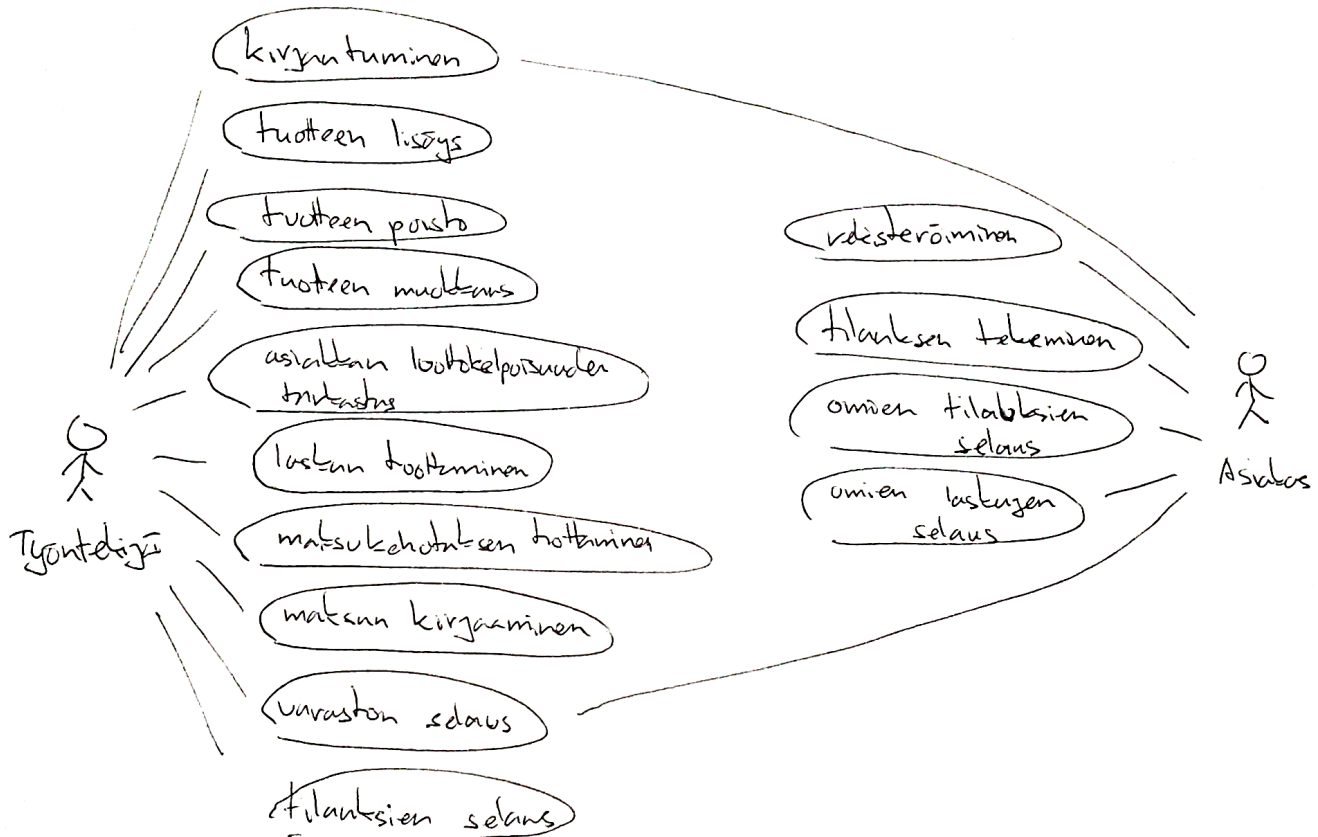 kirjautuminen
tuotteen lisäys
tuotteen poisto
tuotteen muokkaus
asiakkaan luottokelpoisuuden
tarkastus
laskun tuottaminen
maksukehotuksen tuottaminen
maksun kirjaaminen
varaston selaus
tilauksien selaus
Työntekijä
rekisteröiminen
tilauksen tekeminen
omien tilauksien
selaus
omien laskujen
selaus
Asiakas